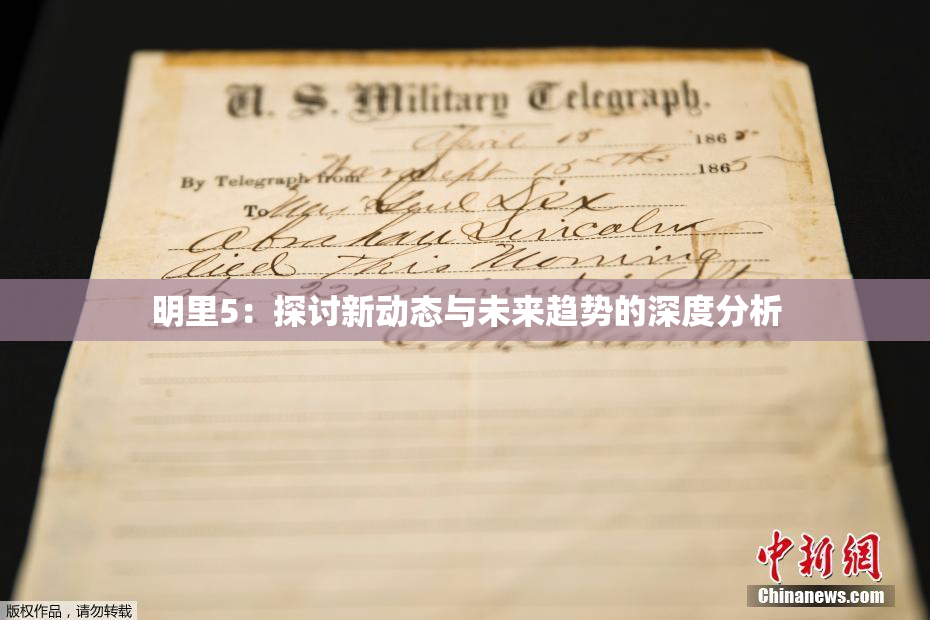 U. S. Military Telegraph.
April 15 1865
By Telegraph from War Dept 15th 1865
To Maj Genl Dix
Abraham Lincoln
died This Morning
at 22 minutes after
明里5：探讨新动态与未来趋势的深度分析
E. M. Stanton
中新网
Chinanews.com
版权作品，请勿转载